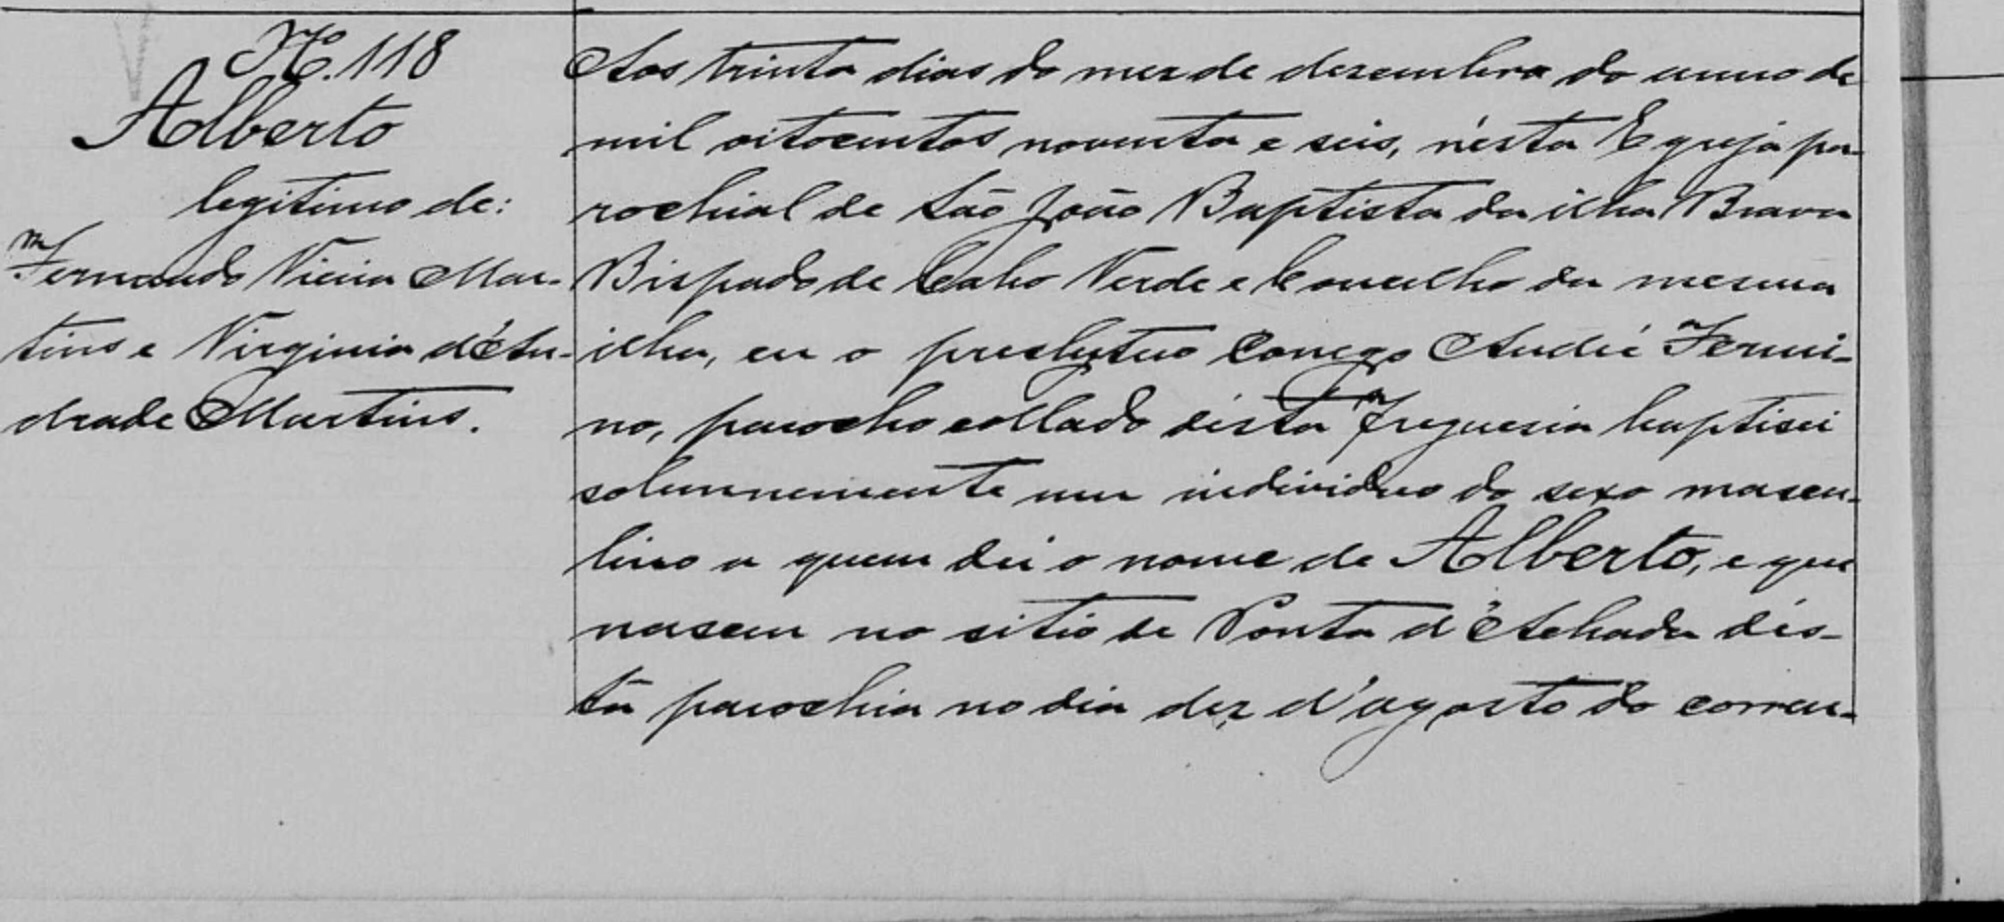 N.º 118
Alberto
legitimo de:
Fernando Vieira Mar-
tins e Virginia d'An-
drade Martins.
Aos trinta dias do mez de dezembro do anno de
mil oitocentos noventa e seis, n'ésta Egreja pa-
rochial de São João Baptista da ilha Brava
Bispado de Cabo Verde e Concelho da mesma
ilha, eu o presbytero Conego André Firmi-
no, parocho collado désta freguesia baptisei
solemnemente um individuo do sexo mascu-
lino a quem dei o nome de Alberto, e que
nasceu no sitio de Ponta d'Achada dés-
ta parochia no dia dez d'agosto do corren-